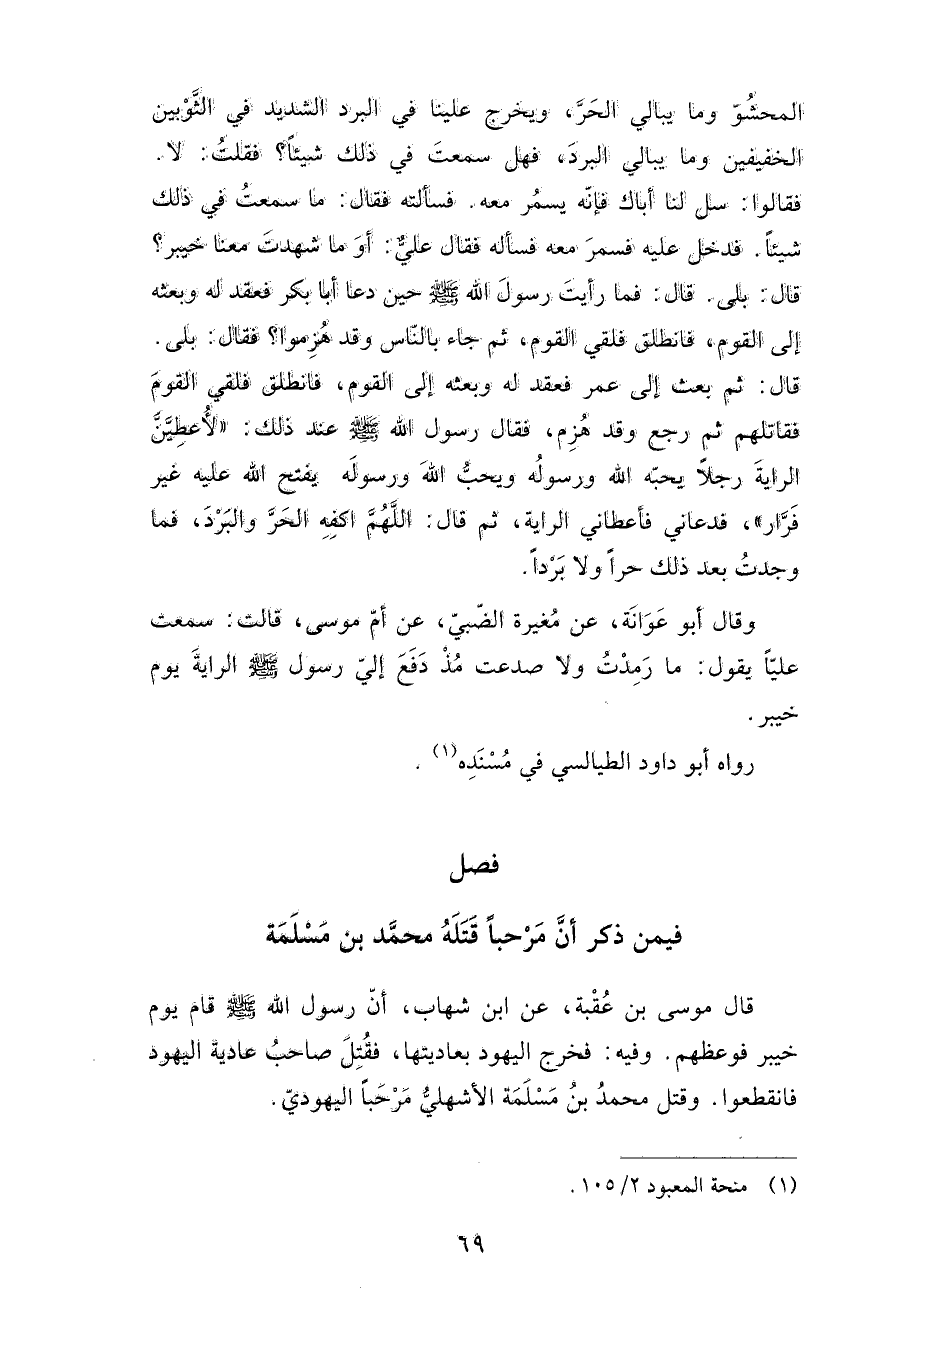 المحشُوّ وما يبالي الحَرَّ، ويخرج علينا في البرد الشديد في الثَّوْبين
الخفيفين وما يبالي البردَ، فهل سمعتَ في ذلك شيئاً؟ فقلتُ: لا.
فقالوا: سل لنا أباك فإنّه يسمُر معه. فسألته فقال: ما سمعتُ في ذلك
شيئاً. فدخل عليه فسمرَ معه فسأله فقال عليٌّ: أوَ ما شهدتَ معنا خيبر؟
قال: بلى. قال: فما رأيتَ رسولَ الله ﷺ حين دعا أبا بكر فعقد له وبعثه
إلى القوم، فانطلق فلقي القوم، ثم جاء بالنّاس وقد هُزِموا؟ فقال: بلى.
قال: ثم بعث إلى عمر فعقد له وبعثه إلى القوم، فانطلق فلقي القومَ
فقاتلهم ثم رجع وقد هُزِم، فقال رسول الله ﷺ عند ذلك: «لأُعطِيَّنَّ
الرايةَ رجلاً يحبّه الله ورسولُه ويحبُّ اللهَ ورسولَه يفتح الله عليه غير
فَرَّار»، فدعاني فأعطاني الراية، ثم قال: اللَّهُمَّ اكفِهِ الحَرَّ والبَرْدَ، فما
وجدتُ بعد ذلك حراً ولا بَرْداً.
وقال أبو عَوَانَة، عن مُغيرة الضّبيّ، عن أمّ موسى، قالت: سمعت
عليّاً يقول: ما رَمِدْتُ ولا صدعت مُذْ دَفَعَ إليّ رسول ﷺ الرايةَ يوم
خيبر.
رواه أبو داود الطيالسي في مُسْنَدِه(١).
فصل
فيمن ذكر أنَّ مَرْحباً قَتَلَهُ محمَّد بن مَسْلَمَة
قال موسى بن عُقْبة، عن ابن شهاب، أنّ رسول الله ﷺ قام يوم
خيبر فوعظهم. وفيه: فخرج اليهود بعاديتها، فقُتِلَ صاحبُ عادية اليهود
فانقطعوا. وقتل محمدُ بنُ مَسْلَمَة الأشهليُّ مَرْحَباً اليهوديّ.
(١) منحة المعبود ١٠٥/٢.
٦٩